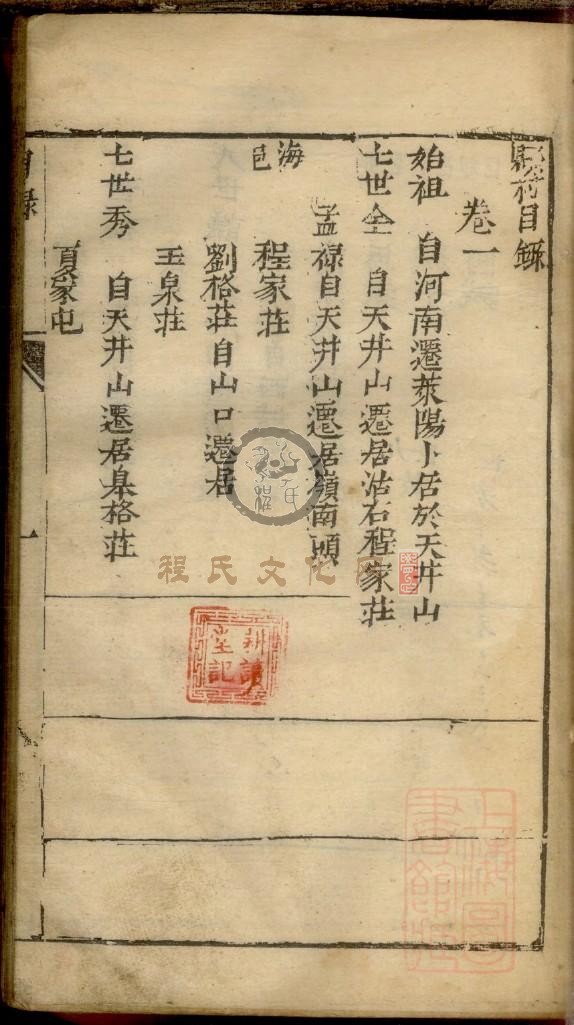 縣村目錄
卷一
始祖 自河南遷萊陽卜居於天井山
七世全 自天井山遷居沽右程家莊
孟祿自天井山遷居嶺南頭
海邑
程家莊
劉格莊自山口遷居
玉泉莊
七世秀 自天井山遷居臯格莊
夏家屯
目錄
一
程氏文化
耕讀堂記
上海圖書館藏